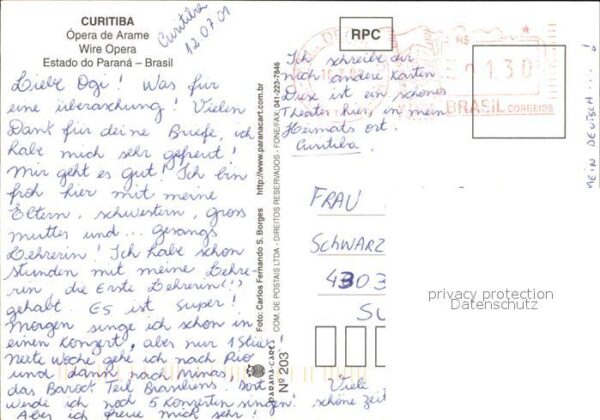 CURITIBA
Ópera de Arame
Wire Opera
Estado do Paraná – Brasil
Curitiba
12.07.01
Liebe Ogi! Was für
eine überaschung! Vielen
Dank für deine Briefe, ich
habe mich sehr gefreut!
Mir geht es gut! Ich bin
froh hier mit meine
Eltern, schwestern, gross
mutter und ... gesangs
Lehrerin! Ich habe schon
stunden mit meine Lehre-
rin die Erste Lehrerin(!)
gehalt. Es ist super!
Morgen singe ich schon in
einen Konzert, aber nur 1 Stück!
Neste Woche gehe ich nach Rio
und dann nach Minas,
das Barock Teil Brasiliens. Dort
werde ich noch 5 Konzerten singen!
Aber ich freue mich sehr!
Foto: Carlos Fernando S. Borges http://www.paranacart.com.br
COM DE POSTAIS LTDA - DIREITOS RESERVADOS - FONE/FAX: 041-223-7846
PARANÁ-CART
Nº 203
RPC
RS
1130
BRASIL CORREIOS
Ich schreibe dir
noch andere Karten
Diese ist ein schönes
Theater hier, in mein
Heimats ort.
Curitiba.
MEIN DEUTSCH...!
FRAU
SCHWARZ
4303
privacy protection
Datenschutz
Viele
schöne zeit